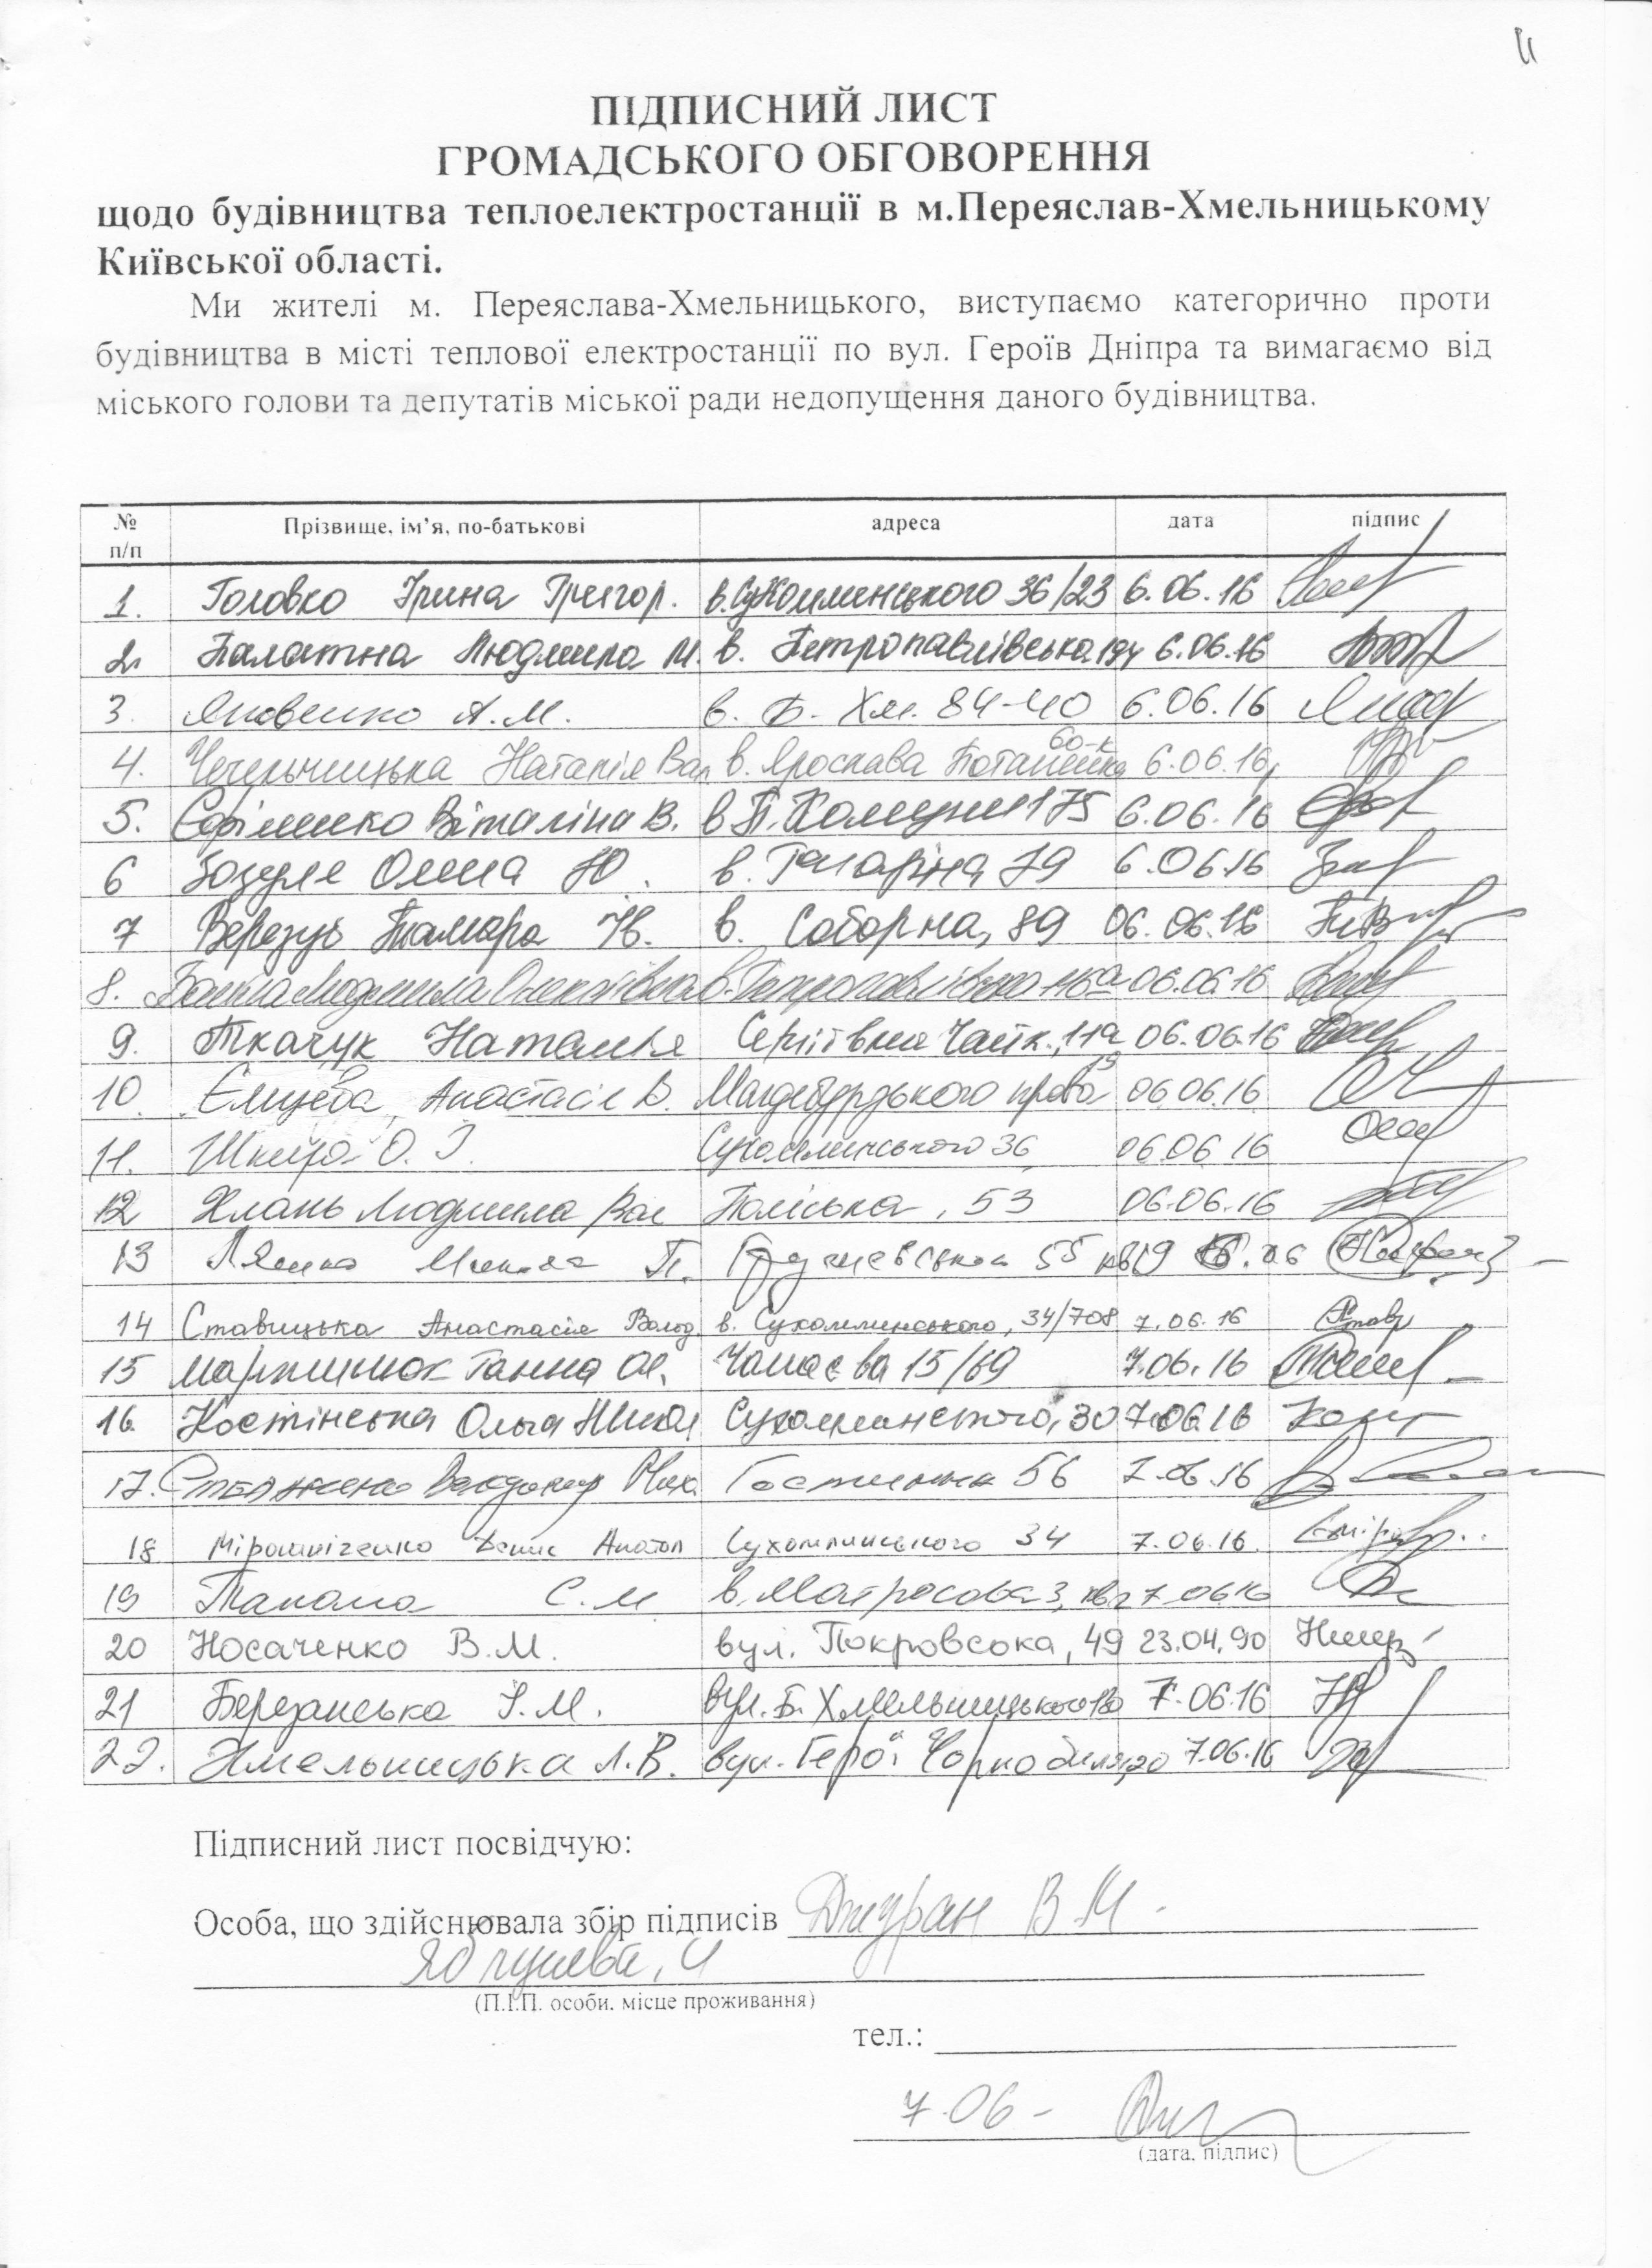 ПІДПИСНИЙ ЛИСТ
ГРОМАДСЬКОГО ОБГОВОРЕННЯ
щодо будівництва теплоелектростанції в м.Переяслав-Хмельницькому
Київської області.
Ми жителі м. Переяслава-Хмельницького, виступаємо категорично проти
будівництва в місті теплової електростанції по вул. Героїв Дніпра та вимагаємо від
міського голови та депутатів міської ради недопущення даного будівництва.
№ п/п Прізвище, ім’я, по-батькові адреса дата підпис
1. Головко Ірина Григор. в.Сухомлинського 36/23 6.06.16
2. Палатна Людмила М. в. Петропавлівська 6.06.16
3. Яковенко А.М. в. Б. Хм. 84-40 6.06.16
4. Наталія Вал в. Ярослава Потапенка 60-к 6.06.16
5. Єфіменко Віталіна В. в П.Комуни 175 6.06.16
6 Олена Ю. в. Гагаріна 79 6.06.16
7 Верезуб Тамара Ів. в. Соборна, 89 06.06.16
8. Людмила 06.06.16
9. Ткачук Наталья Сергіївна Чайк. 11а 06.06.16
10. Анастасія В. Магдебурзького права 19 06.06.16
11. Шкира О. І. Сухомлинського 36 06.06.16
12 Хлань Людмила Вас Поліська, 53 06.06.16
13 Ляшко Микола П. 55 кв19 06
14 Ставицька Анастасія Волод. в. Сухомлинського, 34/708 7.06.16
15 Мартинюк Ганна Ол. Чапаєва 15/69 7.06.16
16. Костінська Ольга Микол Сухомлинського, 30 7.06.16
17. Володимир Мик. 56 7.06.16
18 Мірошніченко Денис Анатол Сухомлинського 34 7.06.16.
19 Танана С.М в. Матросова 3, кв2 7.06.16
20 Носаченко В.М. вул. Покровсока, 49 23.04.90
21 Березанська І.М. вул. Б. Хмельницького 7.06.16
22. Хмельницька Л.В. вул. Герої Чорнобиля, 20 7.06.16
Підписний лист посвідчую:
Особа, що здійснювала збір підписів Джуран В М
Яблунева, 4
(П.І.П. особи. місце проживання)
тел.:
7.06 -
(дата, підпис)